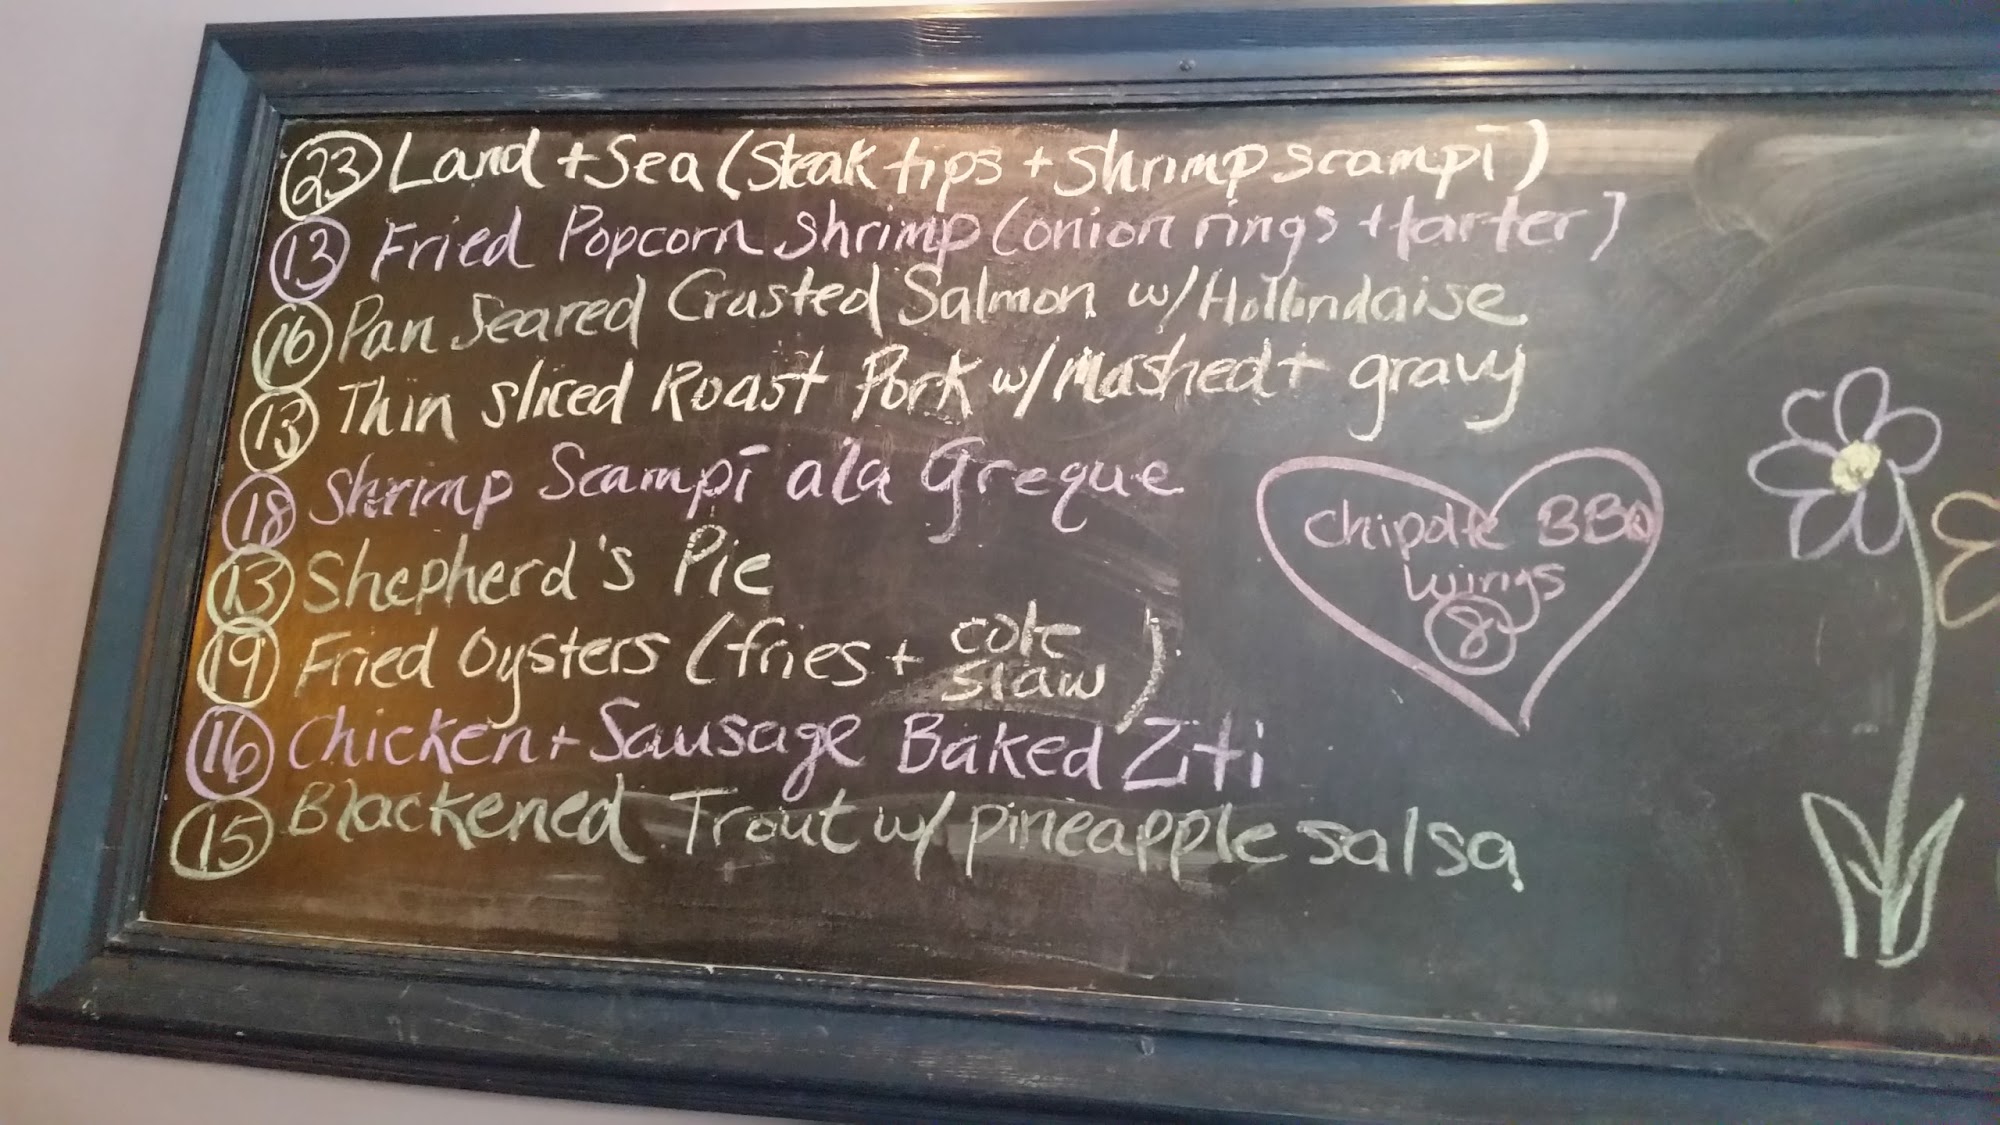 23 Land + Sea (Steak tips + Shrimp scampi)
13 Fried Popcorn Shrimp (onion rings + tarter)
16 Pan Seared Crusted Salmon w/Hollindaise
13 Thin sliced Roast Pork w/Mashed + gravy
18 Shrimp Scampi ala Greque
13 Shepherd's Pie
19 Fried Oysters (fries + cole
slaw)
16 Chicken + Sausage Baked Ziti
15 Blackened Trout w/ pineapple salsa
Chipotle BBQ
Wings
8